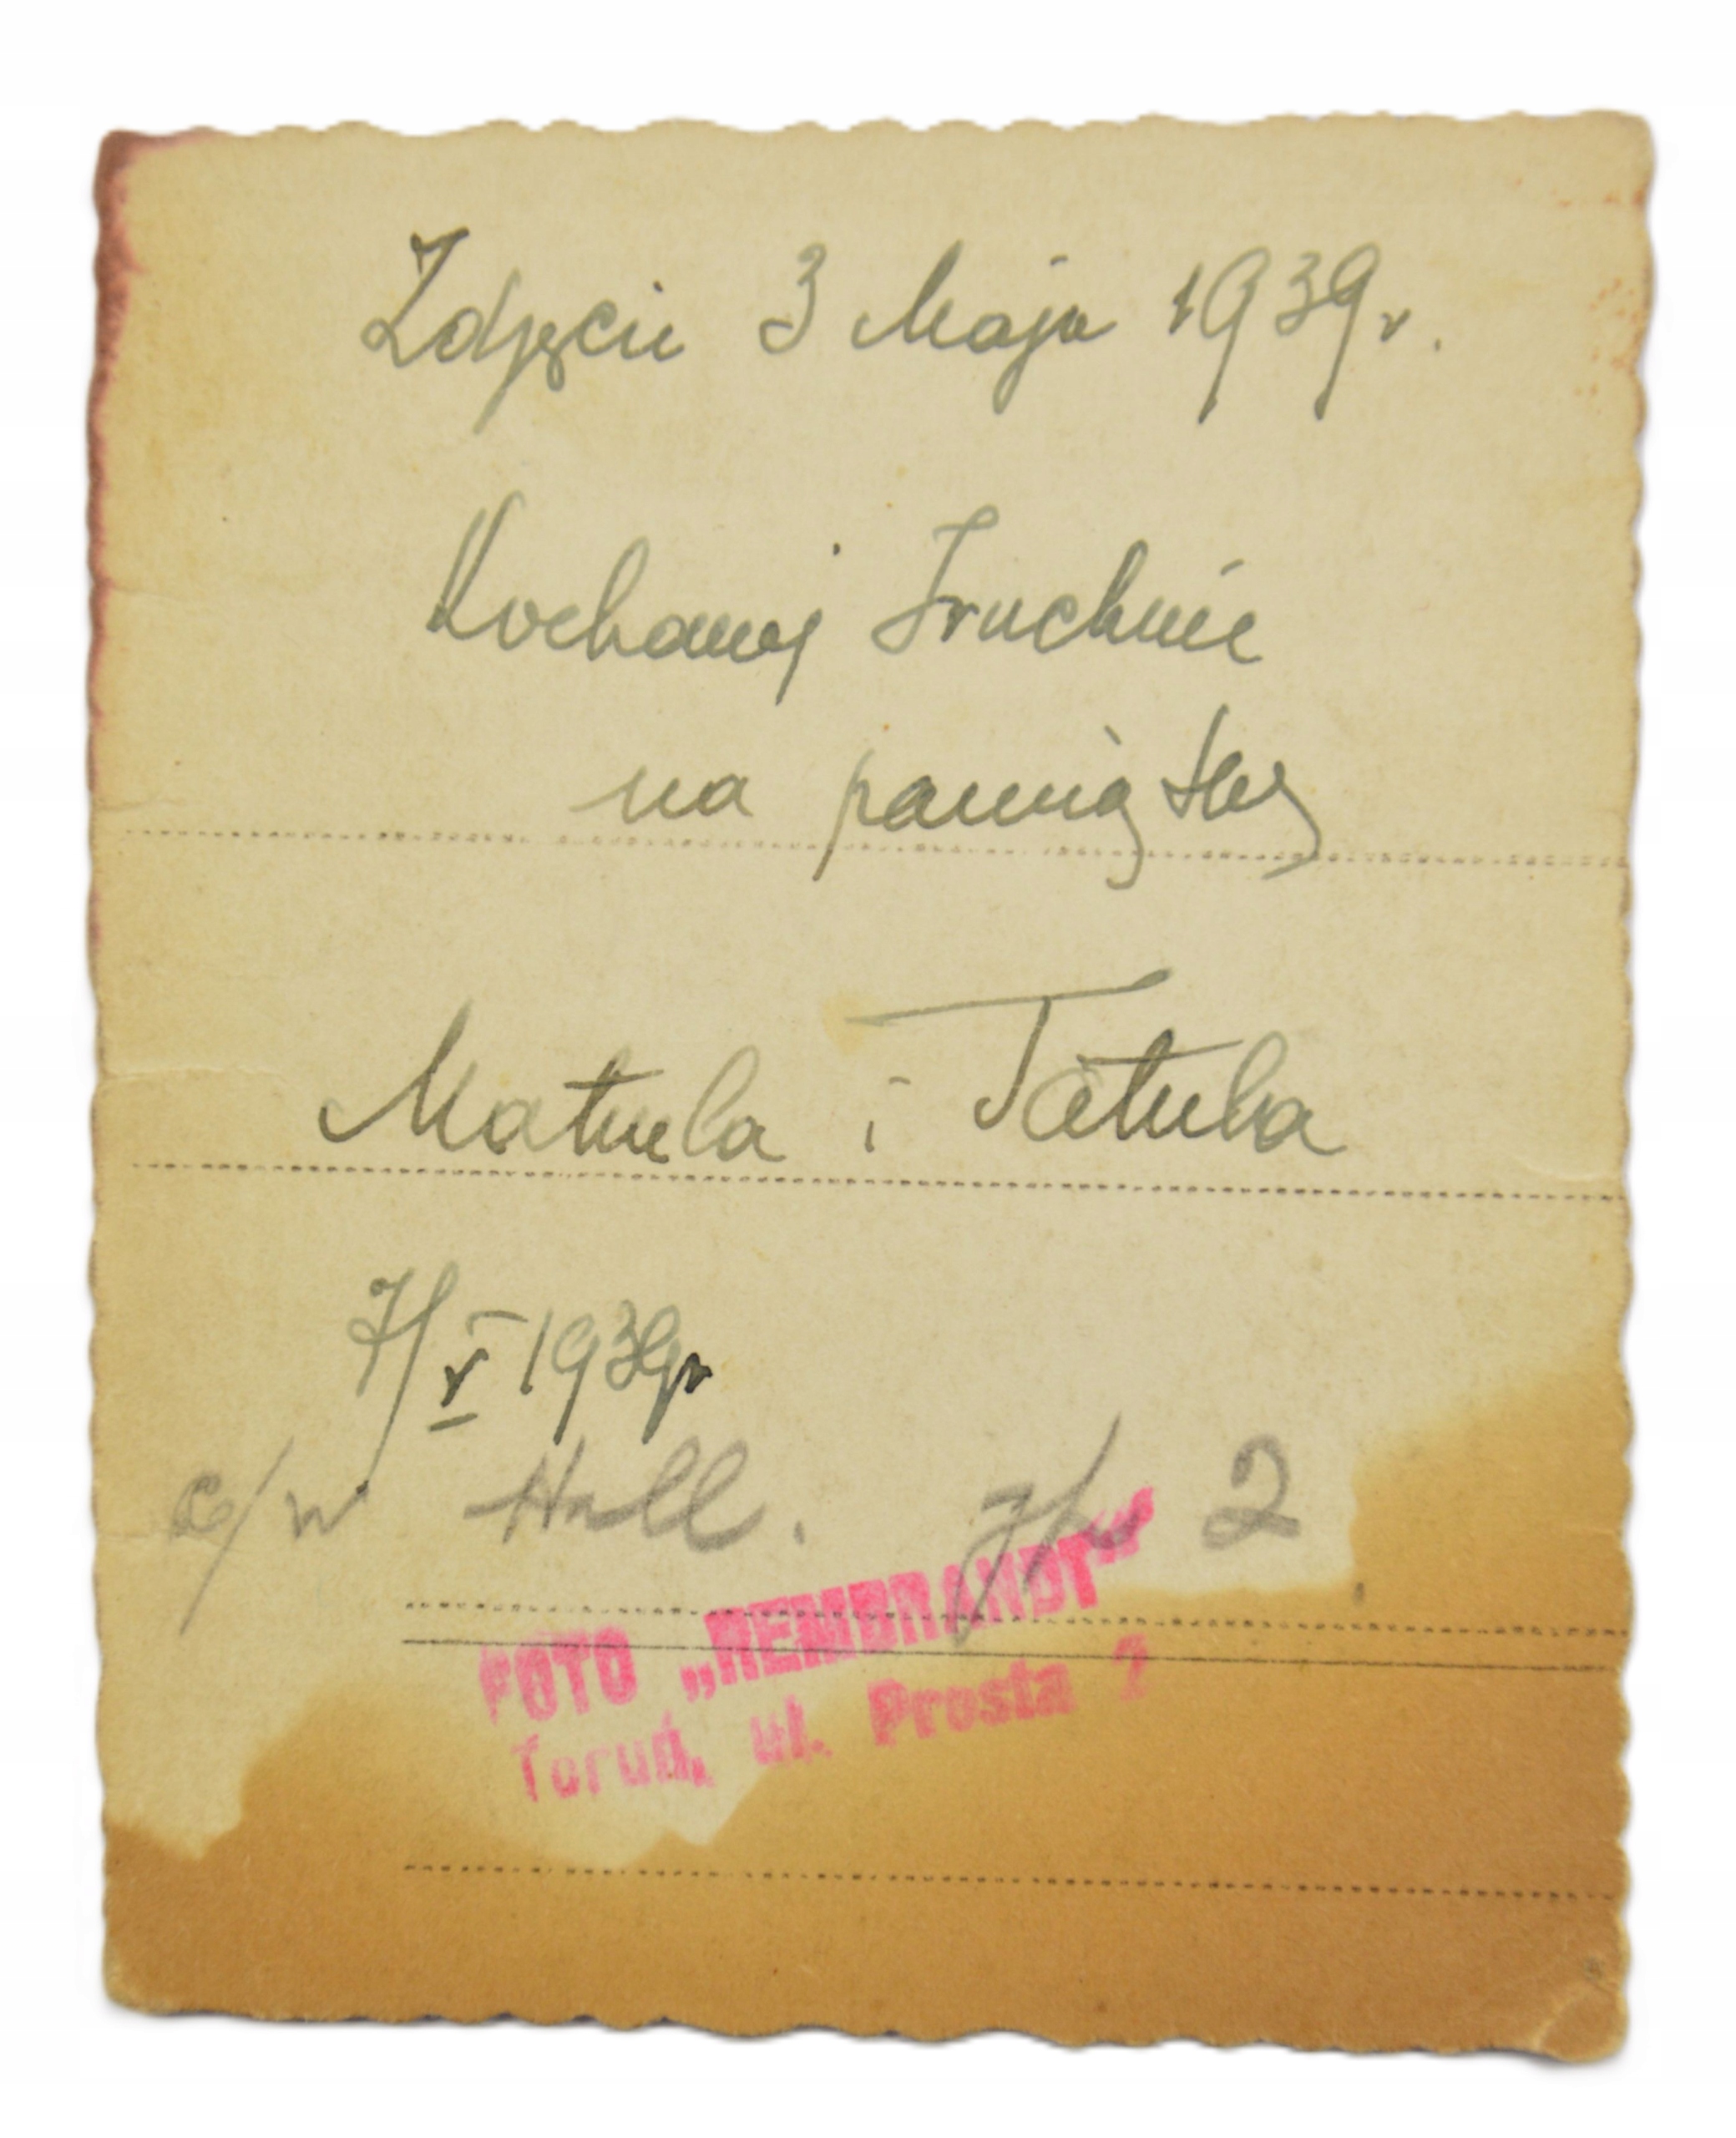 Zdjęcie 3 Maja 1939 r.
Kochanej Iruchnie
na pamiątkę
Matula i Tatula
7/V 1939 r
Hall. 2
FOTO „REMBRANDT"
Toruń, ul. Prosta